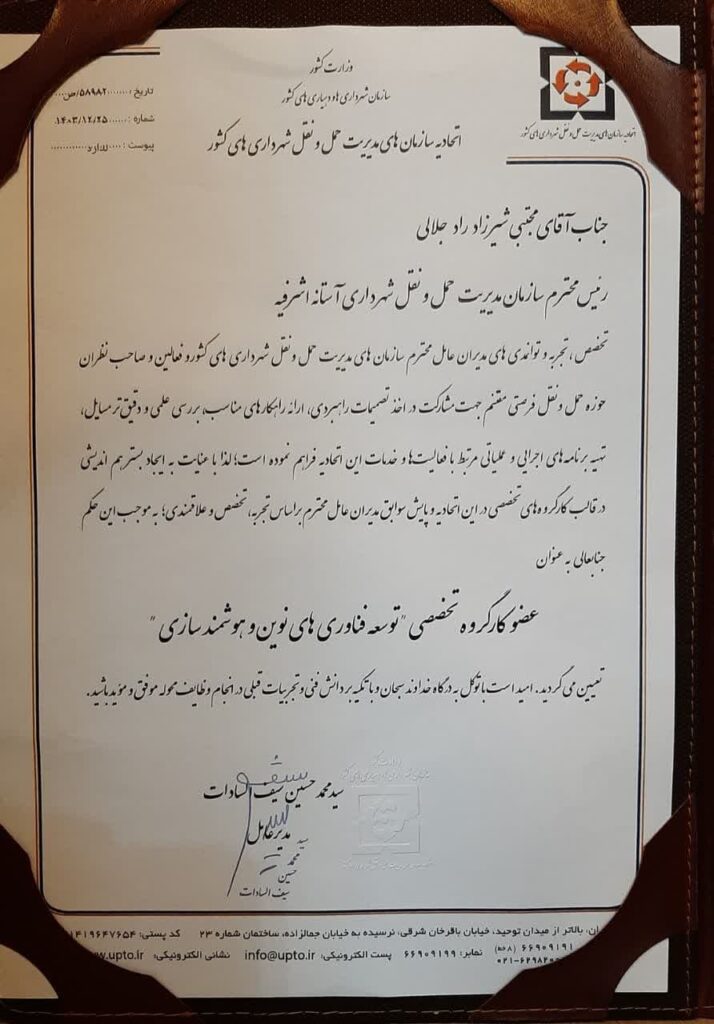 وزارت کشور
سازمان شهرداری ها و دهیاری های کشور
اتحادیه سازمان های مدیریت حمل و نقل شهرداری های کشور
تاریخ : ........۵۸۹۸۲/ص...
شماره : ......۱۴۰۳/۱۲/۲۵
پیوست : .... ندارد ............
اتحادیه سازمان های مدیریت حمل و نقل شهرداری های کشور
جناب آقای مجتبی شیرزاد راد جلالی
رئیس محترم سازمان مدیریت حمل و نقل شهرداری آستانه اشرفیه
تخصص ، تجربه و توانمدی های مدیران عامل محترم سازمان های مدیریت حمل و نقل شهرداری های کشور و فعالین و صاحب نظران
حوزه حمل و نقل فرصتی مغتنم جهت مشارکت در اخذ تصمیمات راهبردی، ارائه راهکارهای مناسب، بررسی علمی و دقیق تر مسایل،
تهیه برنامه های اجرایی و عملیاتی مرتبط با فعالیت ها و خدمات این اتحادیه فراهم نموده است؛ لذا با عنایت به ایجاد بستر هم اندیشی
در قالب کارگروه های تخصصی در این اتحادیه و پایش سوابق مدیران عامل محترم براساس تجربه، تخصص و علاقمندی؛ به موجب این حکم
جنابعالی به عنوان
عضو کارگروه تخصصی "توسعه فناوری های نوین و هوشمند سازی"
تعیین می گردید. امید است با توکل به درگاه خداوند سبحان و با تکیه بر دانش فنی و تجربیات قبلی در انجام وظایف محوله موفق و مؤید باشید.
سید محمد حسین سیف السادات
مدیر عامل
سید
محمد
حسین
سیف السادات
بالاتر از میدان توحید، خیابان باقرخان شرقی، نرسیده به خیابان جمالزاده، ساختمان شماره ۲۳ کد پستی: ۱۴۱۹۶۴۷۶۵۴
۶۶۹۰۹۱۹۱ (۸ خط) نمابر: ۶۶۹۰۹۱۹۹ پست الکترونیکی: info@upto.ir نشانی الکترونیکی: www.upto.ir